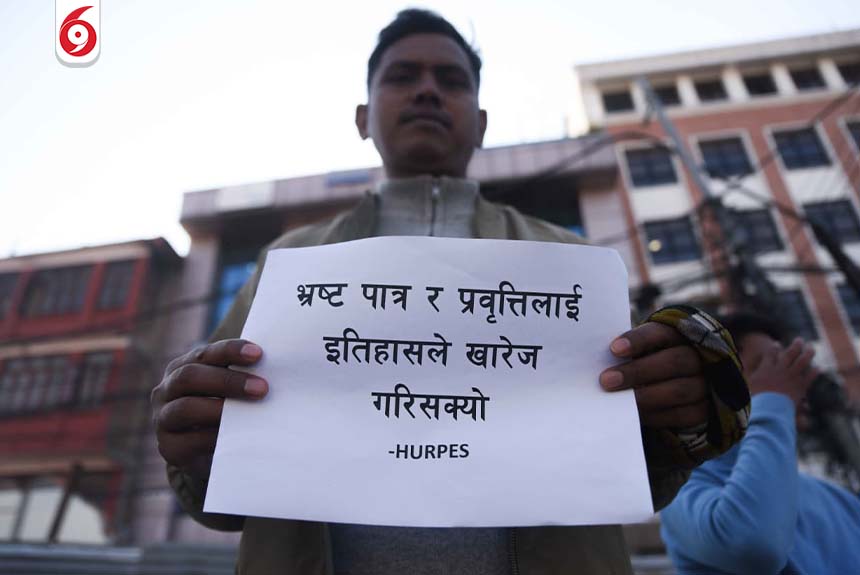 भ्रष्ट पात्र र प्रवृत्तिलाई
इतिहासले खारेज
गरिसक्यो
-HURPES